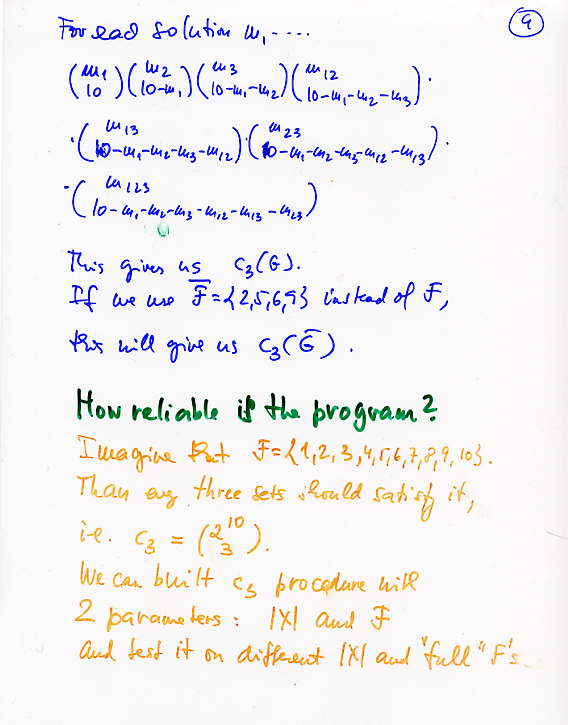 9
For each solution m₁ ....
(m₁ 10)(m₂ 10-m₁)(m₃ 10-m₁-m₂)(m₁₂ 10-m₁-m₂-m₃)·
·(m₁₃ 10-m₁-m₂-m₃-m₁₂)·(m₂₃ 10-m₁-m₂-m₃-m₁₂-m₁₃)·
·(m₁₂₃ 10-m₁-m₂-m₃-m₁₂-m₁₃-m₂₃)
This gives us c₃(G).
If we use F̅={2,5,6,9} instead of F,
this will give us c₃(G̅).
How reliable is the program?
Imagine that F={1,2,3,4,5,6,7,8,9,10}.
Than any three sets should satisfy it,
i.e. c₃ = (2¹⁰ 3).
We can built c₃ procedure with
2 parameters: |X| and F
and test it on different |X| and "full" F's